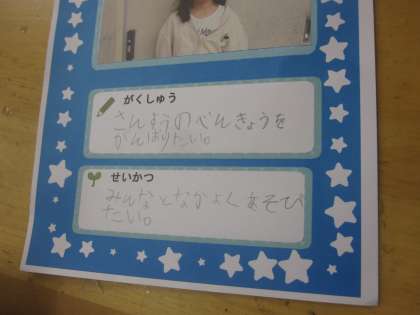 がくしゅう
さんすうのべんきょうを
がんばりたい。
せいかつ
みんなとなかよくあそび
たい。